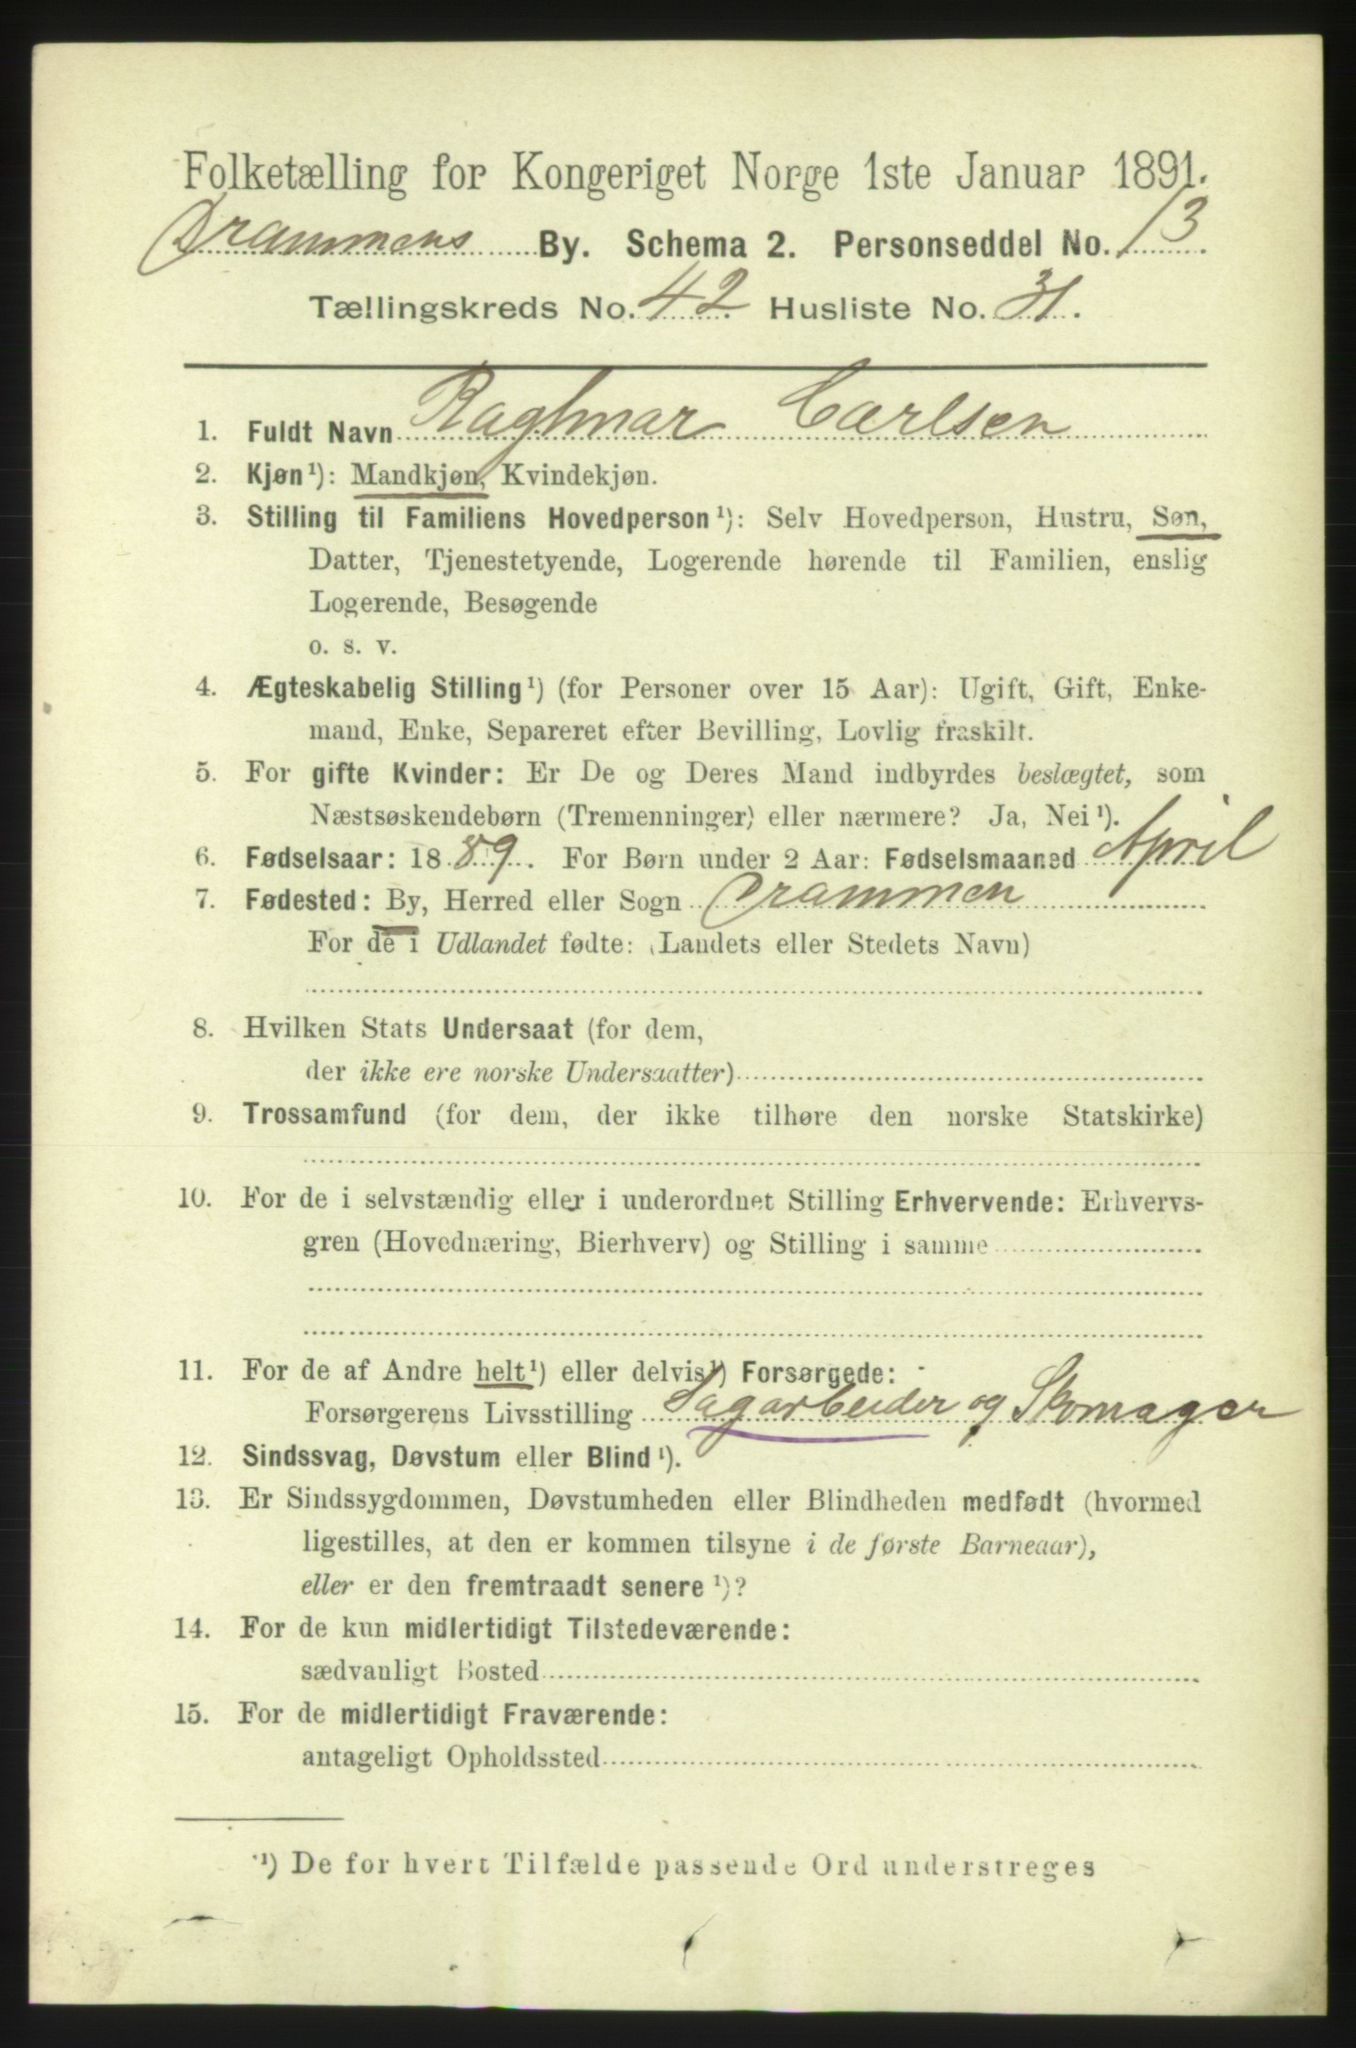 Folketælling for Kongeriget Norge 1ste Januar 1891.
Drammens By. Schema 2. Personseddel No. 13.
Tællingskreds No. 42. Husliste No. 31.
1. Fuldt Navn Raghnar Carlsen
2. Kjøn¹): Mandkjøn, Kvindekjøn.
3. Stilling til Familiens Hovedperson¹): Selv Hovedperson, Hustru, Søn,
Datter, Tjenestetyende, Logerende hørende til Familien, enslig
Logerende, Besøgende
o. s. v.
4. Ægteskabelig Stilling¹) (for Personer over 15 Aar): Ugift, Gift, Enke-
mand, Enke, Separeret efter Bevilling, Lovlig fraskilt.
5. For gifte Kvinder: Er De og Deres Mand indbyrdes beslægtet, som
Næstsøskendebørn (Tremenninger) eller nærmere? Ja, Nei¹).
6. Fødselsaar: 1889. For Børn under 2 Aar: Fødselsmaaned April
7. Fødested: By, Herred eller Sogn Drammen
For de i Udlandet fødte: (Landets eller Stedets Navn)
8. Hvilken Stats Undersaat (for dem,
der ikke ere norske Undersaatter)
9. Trossamfund (for dem, der ikke tilhøre den norske Statskirke)
10. For de i selvstændig eller i underordnet Stilling Erhvervende: Erhvervs-
gren (Hovednæring, Bierhverv) og Stilling i samme
11. For de af Andre helt¹) eller delvis¹) Forsørgede:
Forsørgerens Livsstilling Sagarbeider og Skomager
12. Sindssvag, Døvstum eller Blind¹).
13. Er Sindssygdommen, Døvstumheden eller Blindheden medfødt (hvormed
ligestilles, at den er kommen tilsyne i de første Barneaar),
eller er den fremtraadt senere¹)?
14. For de kun midlertidigt Tilstedeværende:
sædvanligt Bosted
15. For de midlertidigt Fraværende:
antageligt Opholdssted
¹) De for hvert Tilfælde passende Ord understreges